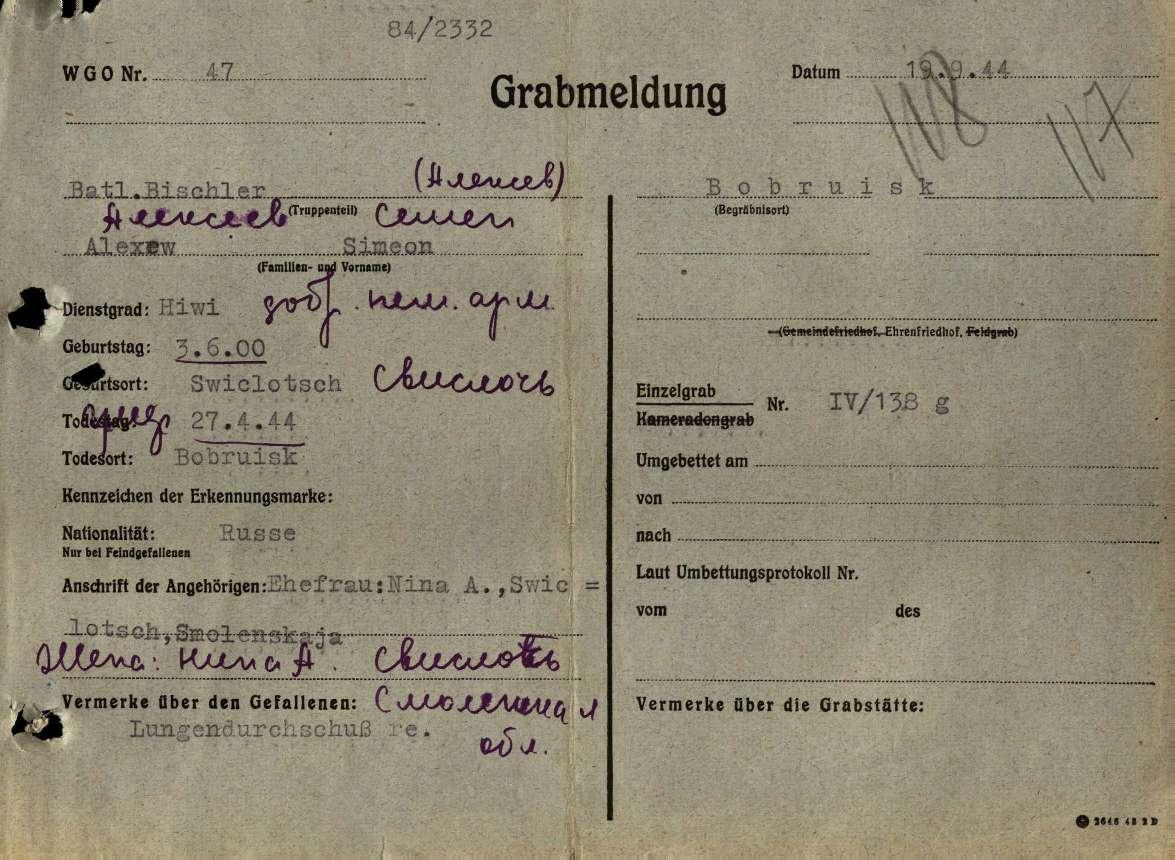 84/2332
WGO Nr. 47
Grabmeldung
Datum 19.9.44
118
117
Batl.Bischler (Алексеев)
(Truppenteil)
Алексеев Семен
Alexew Simeon
(Familien- und Vorname)
Dienstgrad: Hiwi добр. нем. арм.
Geburtstag: 3.6.00
Geburtsort: Swiclotsch Свислочь
Todestag: 27.4.44
Todesort: Bobruisk
Kennzeichen der Erkennungsmarke:
Nationalität: Russe
Nur bei Feindgefallenen
Anschrift der Angehörigen: Ehefrau:Nina A.,Swic =
lotsch,Smolenskaja
Жена: Нина А. Свислочь
Vermerke über den Gefallenen: Смоленская
Lungendurchschuß re. обл.
Bobruisk
(Begräbnisort)
(Gemeindefriedhof, Ehrenfriedhof, Feldgrab)
Einzelgrab
Kameradengrab
Nr. IV/138 g
Umgebettet am
von
nach
Laut Umbettungsprotokoll Nr.
vom des
Vermerke über die Grabstätte:
2646 43 2 D